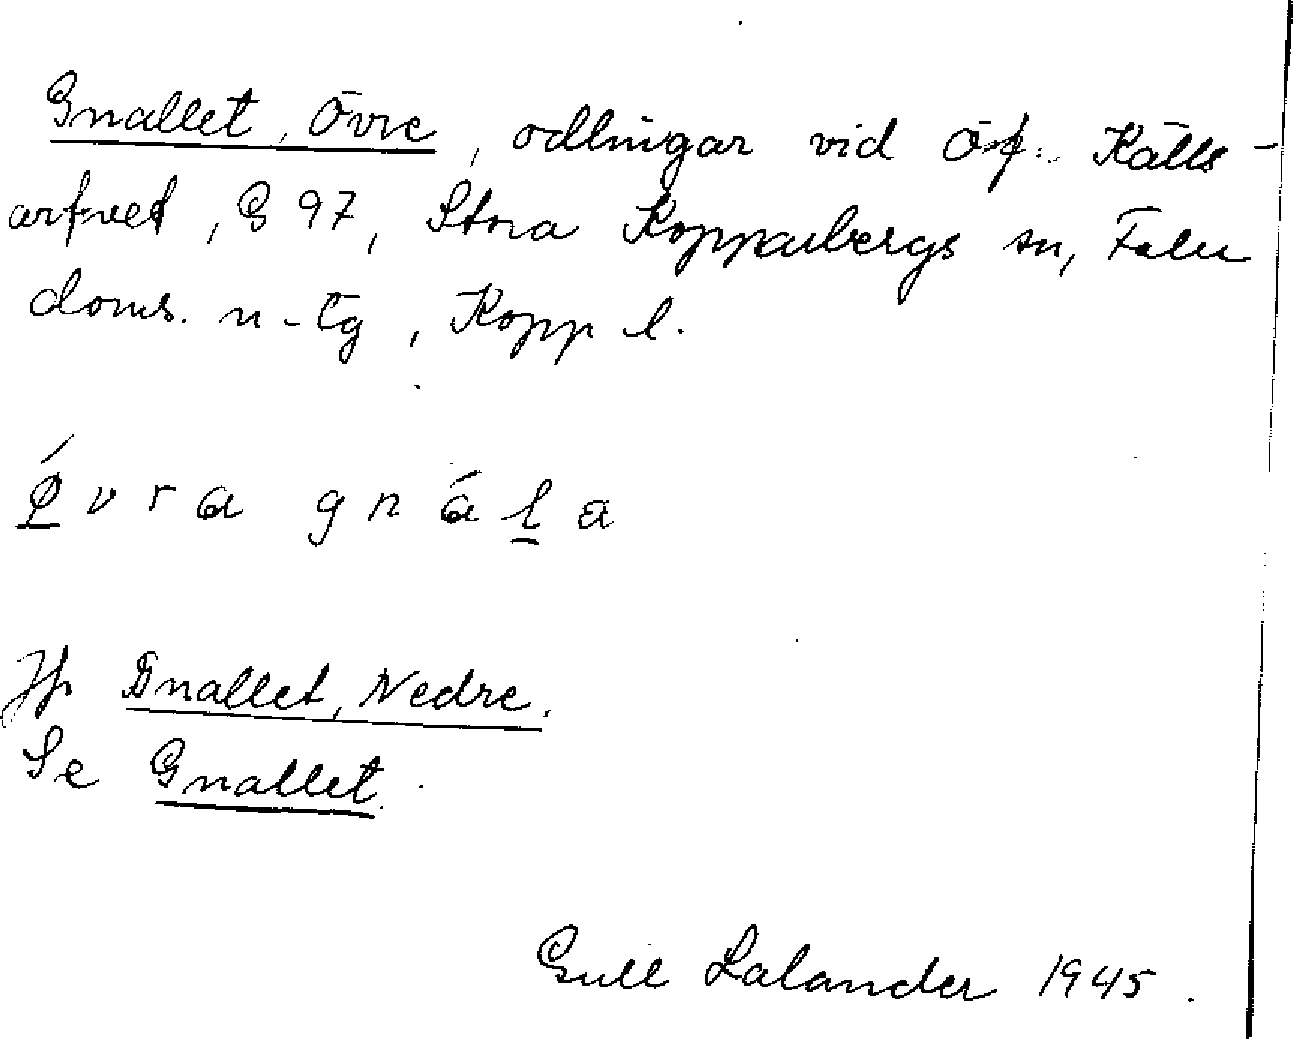 Gnallet, Övre, odlingar vid Öf. Källs-
arfvet, G 97, Stora Kopparbergs sn, Falu
doms. n-tg, Kopp l.
ǿvra gnála
Jfr Gnallet, Nedre.
Se Gnallet.
Gull Lalander 1945.